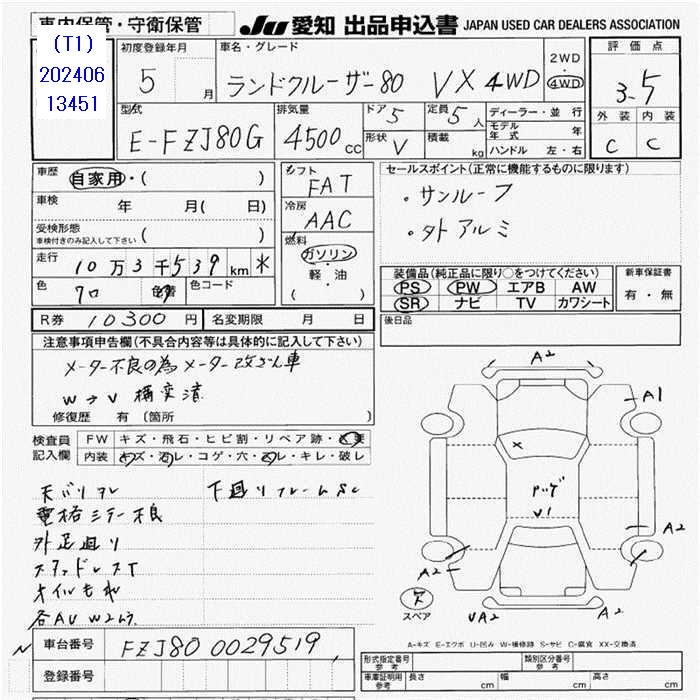 車内保管・守衛保管
JU 愛知 出品申込書 JAPAN USED CAR DEALERS ASSOCIATION
(T1)
202406
13451
初度登録年月
5 月
車名・グレード
ランドクルーザー80 VX 4WD
2WD
4WD
評価点
3.5
外装 内装
C C
型式
E-FZJ80G
排気量
4500 CC
ドア 5
形状 V
定員 5 人
積載 kg
ディーラー・並行
モデル年式 年
ハンドル 左・右
車歴 自家用・( )
車検 年 月( 日)
受検形態
車検付きのみ記入して下さい ( )
走行 10万3千539 km *
色 クロ 色替 色コード
シフト
FAT
冷房
AAC
燃料
ガソリン
軽・油
( )
セールスポイント(正常に機能するものに限ります)
・サンルーフ
・外アルミ
装備品(純正品に限り○をつけてください)
PS PW エアB AW
SR ナビ TV カワシート
新車保証書
有・無
後日品
R券 10300 円 名変期限 月 日
注意事項申告欄(不具合内容等は具体的に記入して下さい)
メーター不良の為メーター改ざん車
W→V 構変済
修復歴 有(箇所 )
検査員記入欄
FW キズ・飛石・ヒビ割・リペア跡・X要
内装 キズ・汚レ・コゲ・穴・凹レ・キレ・破レ
下廻りフレームSC
電格ミラー不良
外足廻り
オイルもれ
A2
A1
A2
A2
VA2
A2
V1
スペア
A-キズ E-エクボ U-凹み W-補修跡 S-サビ C-腐食 XX-交換済
車台番号 FZJ80 0029519
登録番号
形式指定番号 参考
類別区分番号 参考
車庫証明用 参考 長さ cm 幅 cm 高さ cm